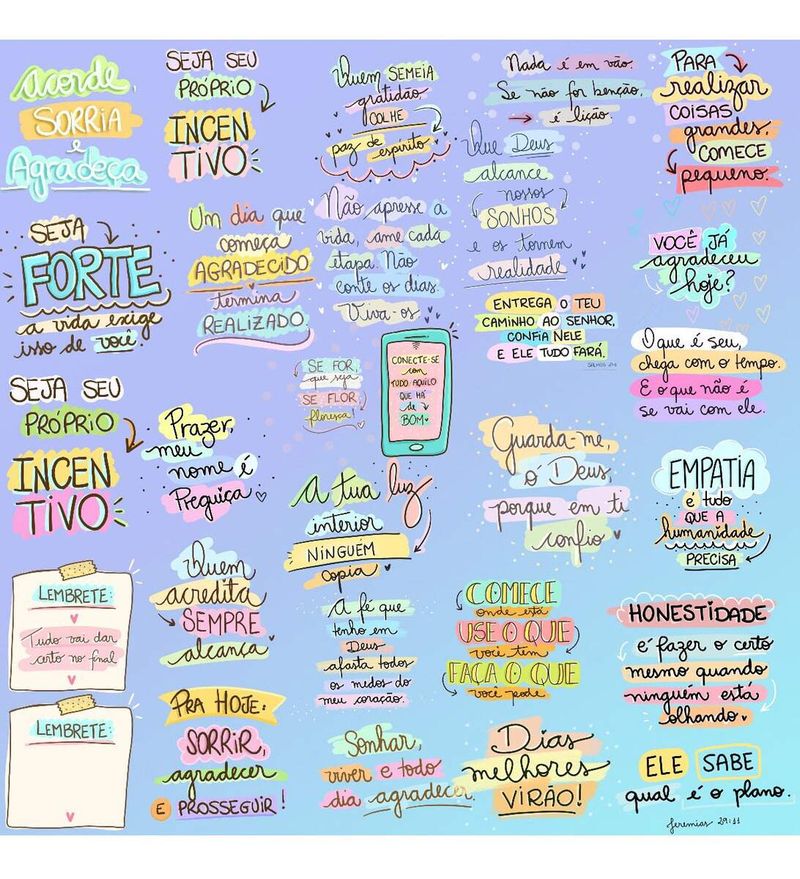 Acorde,
SORRIA
e
Agradeça
SEJA SEU
PRÓPRIO
INCEN
TIVO
Quem SEMEIA
gratidão,
COLHE
paz de espírito
Nada é em vão.
Se não for benção,
é lição.
PARA
realizar
COISAS
grandes,
COMECE
pequeno.
SEJA
FORTE
a vida exige
isso de você.
Um dia que
começa
AGRADECIDO
termina
REALIZADO.
Não apresse a
vida, ame cada
etapa. Não
conte os dias.
Viva-os
Que Deus
alcance
nossos
SONHOS
e os tornem
realidade
VOCÊ JÁ
agradeceu
hoje?
ENTREGA O TEU
CAMINHO AO SENHOR,
CONFIA NELE
E ELE TUDO FARÁ.
O que é seu,
chega com o tempo.
E o que não é
se vai com ele.
SEJA SEU
PRÓPRIO
INCEN
TIVO
Prazer,
meu
nome é
Preguiça
SE FOR,
que seja
SE FLOR,
floresça!
CONECTE-SE
com
TUDO AQUILO
QUE HÁ
de
BOM
Guarda-me,
ó Deus,
porque em ti
confio
EMPATIA
é tudo
QUE A
humanidade
PRECISA
A tua luz
interior
NINGUÉM
copia
LEMBRETE:
Tudo vai dar
certo no final
Quem
acredita
SEMPRE
alcança
A fé que
tenho em
Deus
afasta todos
os medos do
meu coração.
COMECE
onde está
USE O QUE
você tem
FAÇA O QUE
você pode
HONESTIDADE
é fazer o certo
mesmo quando
ninguém está
olhando.
LEMBRETE:
PRA HOJE:
SORRIR,
agradecer
E PROSSEGUIR!
Sonhar,
viver e todo
dia agradecer.
Dias
melhores
VIRÃO!
ELE SABE
qual é o plano.
Jeremias 29:11